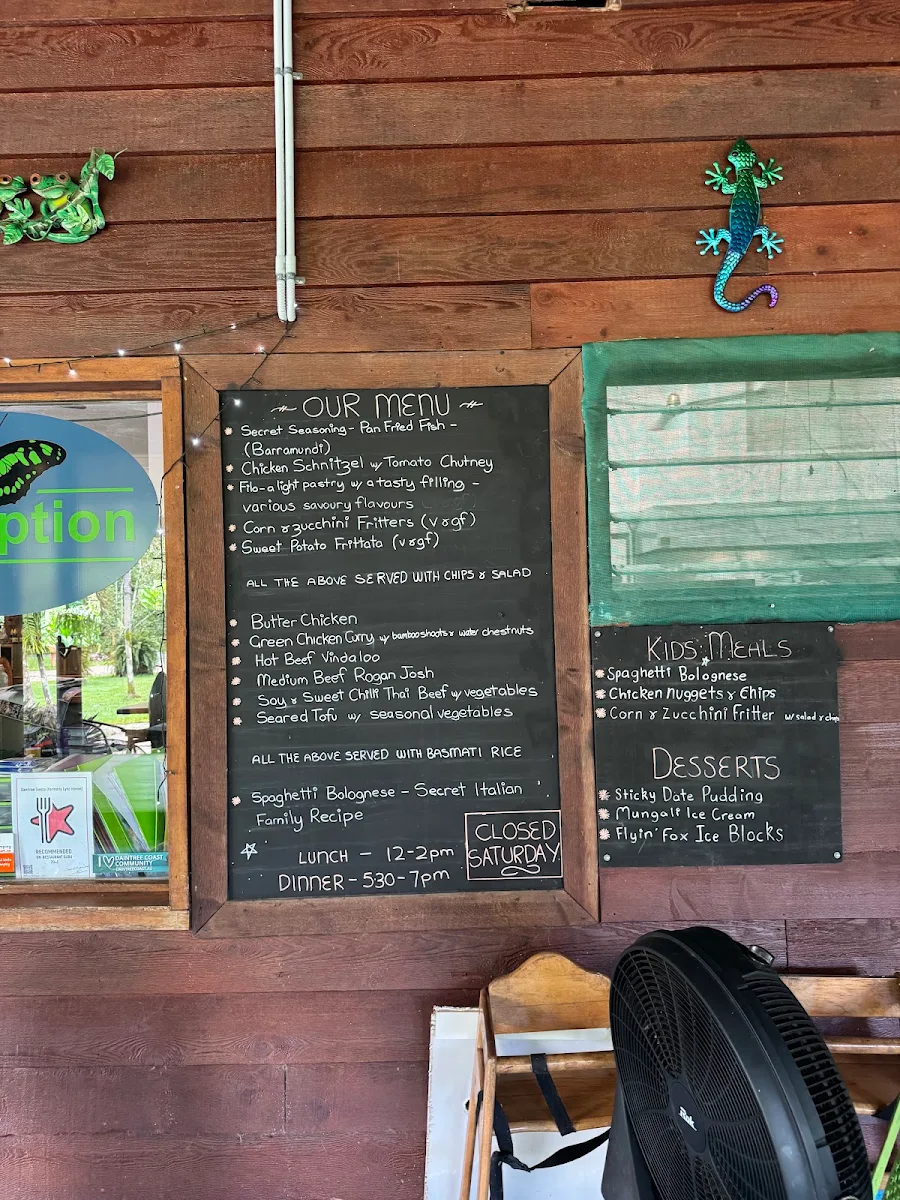 OUR MENU
Secret Seasoning - Pan Fried Fish -
(Barramundi)
Chicken Schnitzel w/ Tomato Chutney
Filo - a light pastry w/ a tasty filling -
various savoury flavours
Corn & zucchini Fritters (v & gf)
Sweet Potato Frittata (v & gf)
ALL THE ABOVE SERVED WITH CHIPS & SALAD
Butter Chicken
Green Chicken Curry w/ bamboo shoots & water chestnuts
Hot Beef Vindaloo
Medium Beef Rogan Josh
Soy & Sweet Chilli Thai Beef w/ vegetables
Seared Tofu w/ seasonal vegetables
ALL THE ABOVE SERVED WITH BASMATI RICE
Spaghetti Bolognese - Secret Italian
Family Recipe
LUNCH - 12-2pm
DINNER - 5:30-7pm
CLOSED
SATURDAY
KIDS MEALS
Spaghetti Bolognese
Chicken Nuggets & Chips
Corn & Zucchini Fritter w/ salad & chips
DESSERTS
Sticky Date Pudding
Mungali Ice Cream
Flyin' Fox Ice Blocks
ption
RECOMMENDED
I
DAINTREE COAST
COMMUNITY